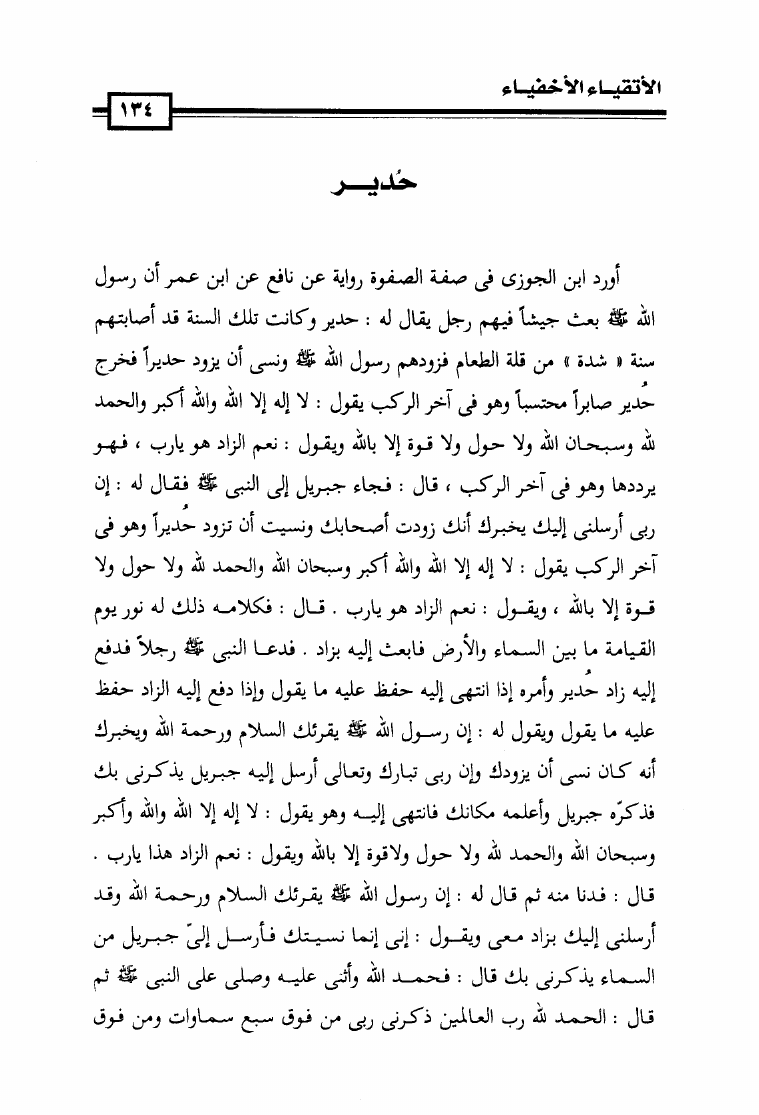 الأتقيـاء الأخفيـاء
١٣٤
حُديـــر
أورد ابن الجوزى فى صفة الصفوة رواية عن نافع عن ابن عمر أن رسول
الله ﷺ بعث جيشاً فيهم رجل يقال له : حدير وكانت تلك السنة قد أصابتهم
سنة « شدة » من قلة الطعام فزودهم رسول الله ﷺ ونسى أن يزود حديراً فخرج
حُدير صابراً محتسباً وهو فى آخر الركب يقول : لا إله إلا الله والله أكبر والحمد
لله وسبحان الله ولا حول ولا قوة إلا بالله ويقول : نعم الزاد هو يارب ، فهو
يرددها وهو فى آخر الركب ، قال : فجاء جبريل إلى النبى ﷺ فقال له : إن
ربى أرسلنى إليك يخبرك أنك زودت أصحابك ونسيت أن تزود حُديراً وهو فى
آخر الركب يقول : لا إله إلا الله والله أكبر وسبحان الله والحمد لله ولا حول ولا
قوة إلا بالله ، ويقول : نعم الزاد هو يارب . قال : فكلامه ذلك له نور يوم
القيامة ما بين السماء والأرض فابعث إليه بزاد . فدعا النبى ﷺ رجلاً فدفع
إليه زاد حُدير وأمره إذا انتهى إليه حفظ عليه ما يقول وإذا دفع إليه الزاد حفظ
عليه ما يقول ويقول له : إن رسول الله ﷺ يقرئك السلام ورحمة الله ويخبرك
أنه كان نسى أن يزودك وإن ربى تبارك وتعالى أرسل إليه جبريل يذكرنى بك
فذكرّه جبريل وأعلمه مكانك فانتهى إليه وهو يقول : لا إله إلا الله والله وأكبر
وسبحان الله والحمد لله ولا حول ولاقوة إلا بالله ويقول : نعم الزاد هذا يارب .
قال : فدنا منه ثم قال له : إن رسول الله ﷺ يقرئك السلام ورحمة الله وقد
أرسلنى إليك بزاد معى ويقول : إنى إنما نسيتك فأرسل إلىّ جبريل من
السماء يذكرنى بك قال : فحمد الله وأثنى عليه وصلى على النبى ﷺ ثم
قال : الحمد لله رب العالمين ذكرنى ربى من فوق سبع سماوات ومن فوق